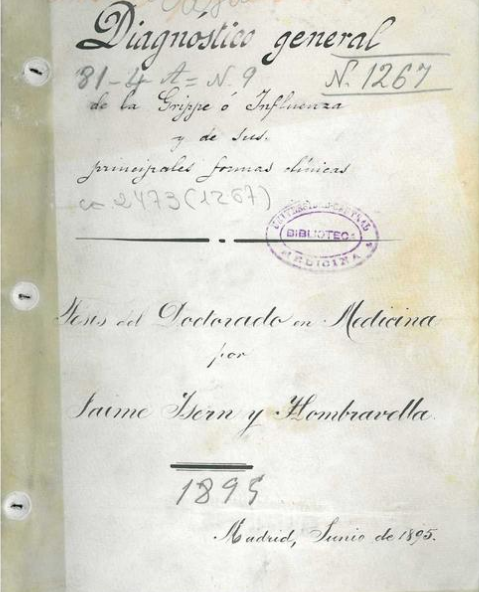 Diagnóstico general
81-4 A = N. 9
N. 1267
de la Grippe ó Influenza
y de sus
principales formas clínicas
ca 2473 (1267)
BIBLIOTECA
MEDICINA
Tesis del Doctorado en Medicina
por
Jaime Isern y Hombravella.
1895
Madrid, Junio de 1895.